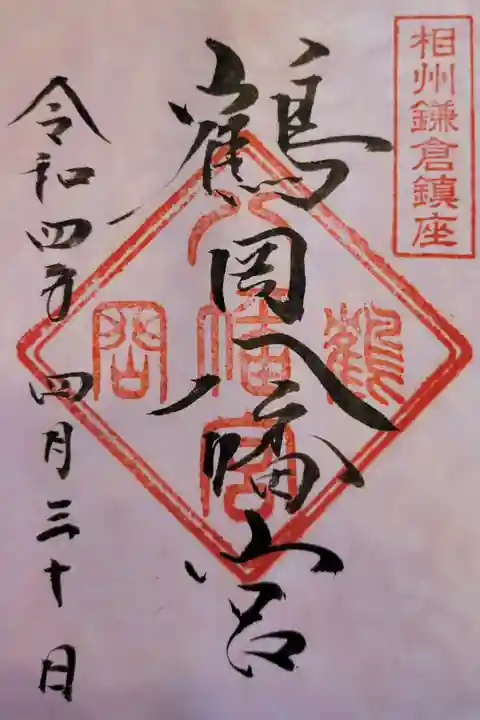 相州鎌倉鎮座
鶴岡八幡宮
鶴岡八幡宮
令和四年四月三十日